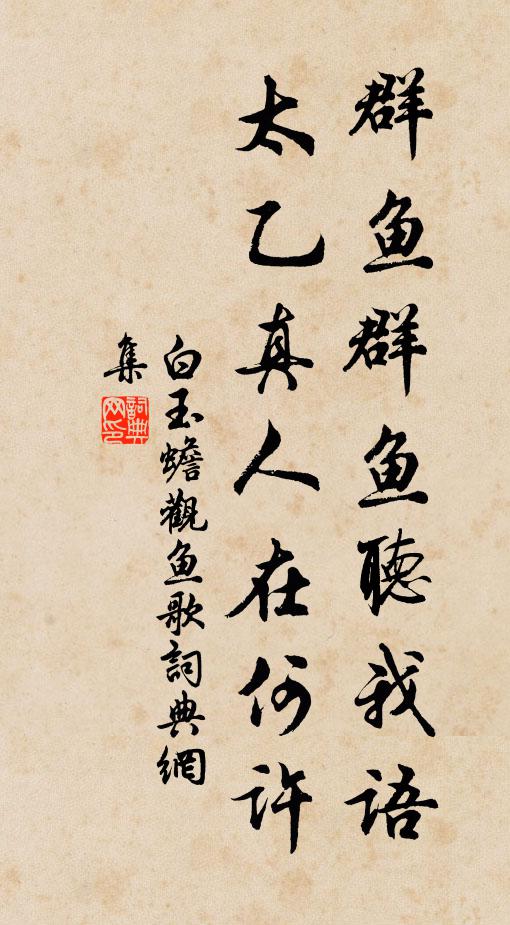 群鱼群鱼聽我語
太乙真人在何許
白玉蟾觀鱼歌詞典網
集
詞典网印